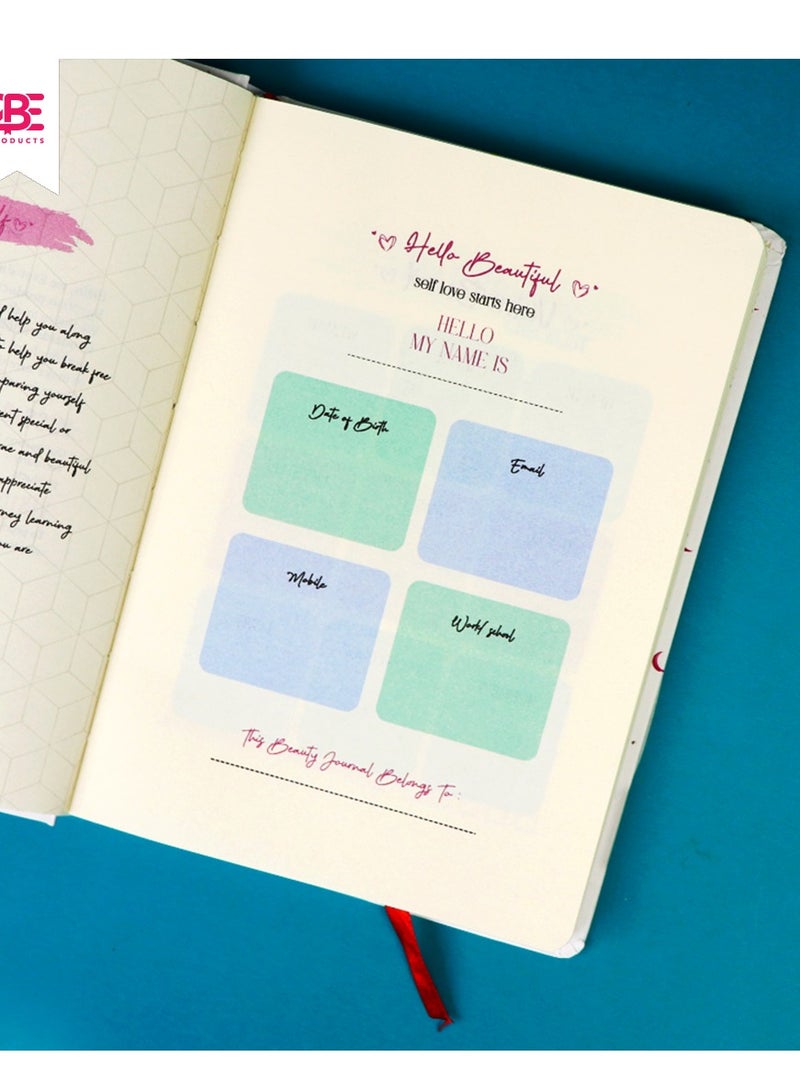 BE
help you along
help you break free
yourself
special or
and beautiful
appreciate
learning
are
Hello Beautiful
self love starts here
HELLO
MY NAME IS
Date of Birth
Email
Mobile
Work/ school
This Beauty Journal Belongs To :